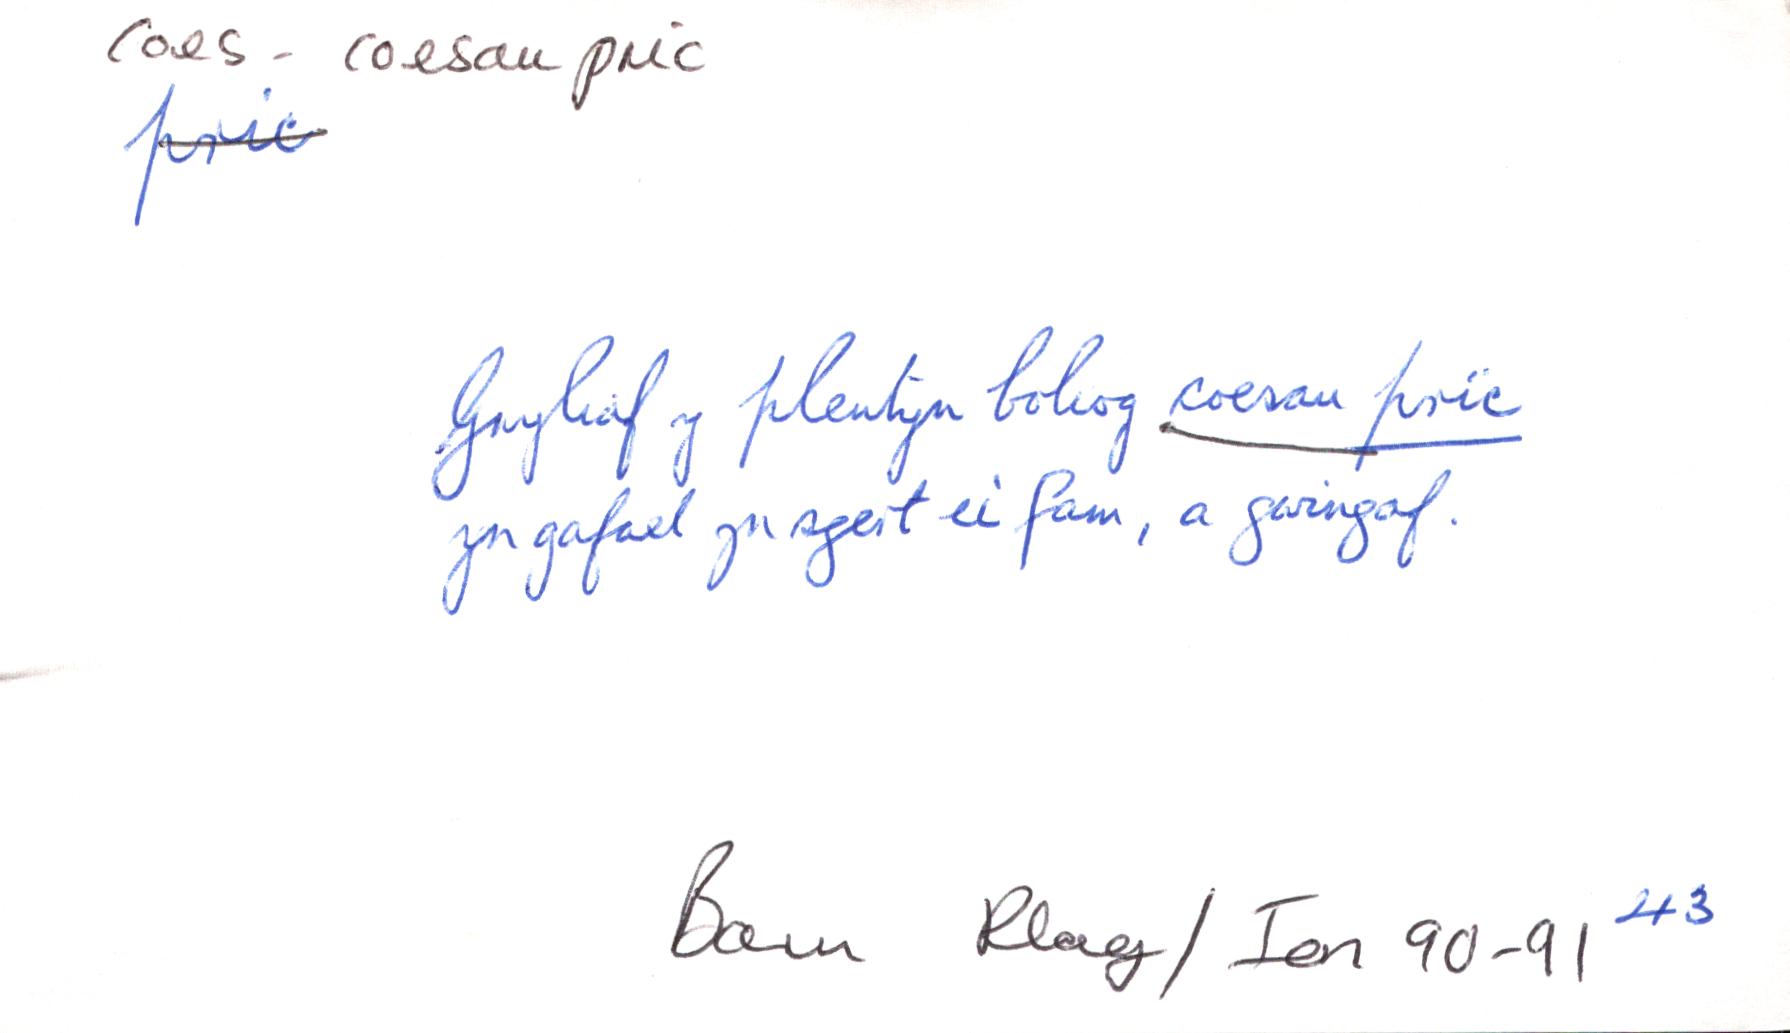 coes - coesau pric
pric
Gwyliaf y plentyn boliog coesau pric
yn gafael yn sgert ei fam, a gwingaf.
Barn Rhag/Ion 90-91 43